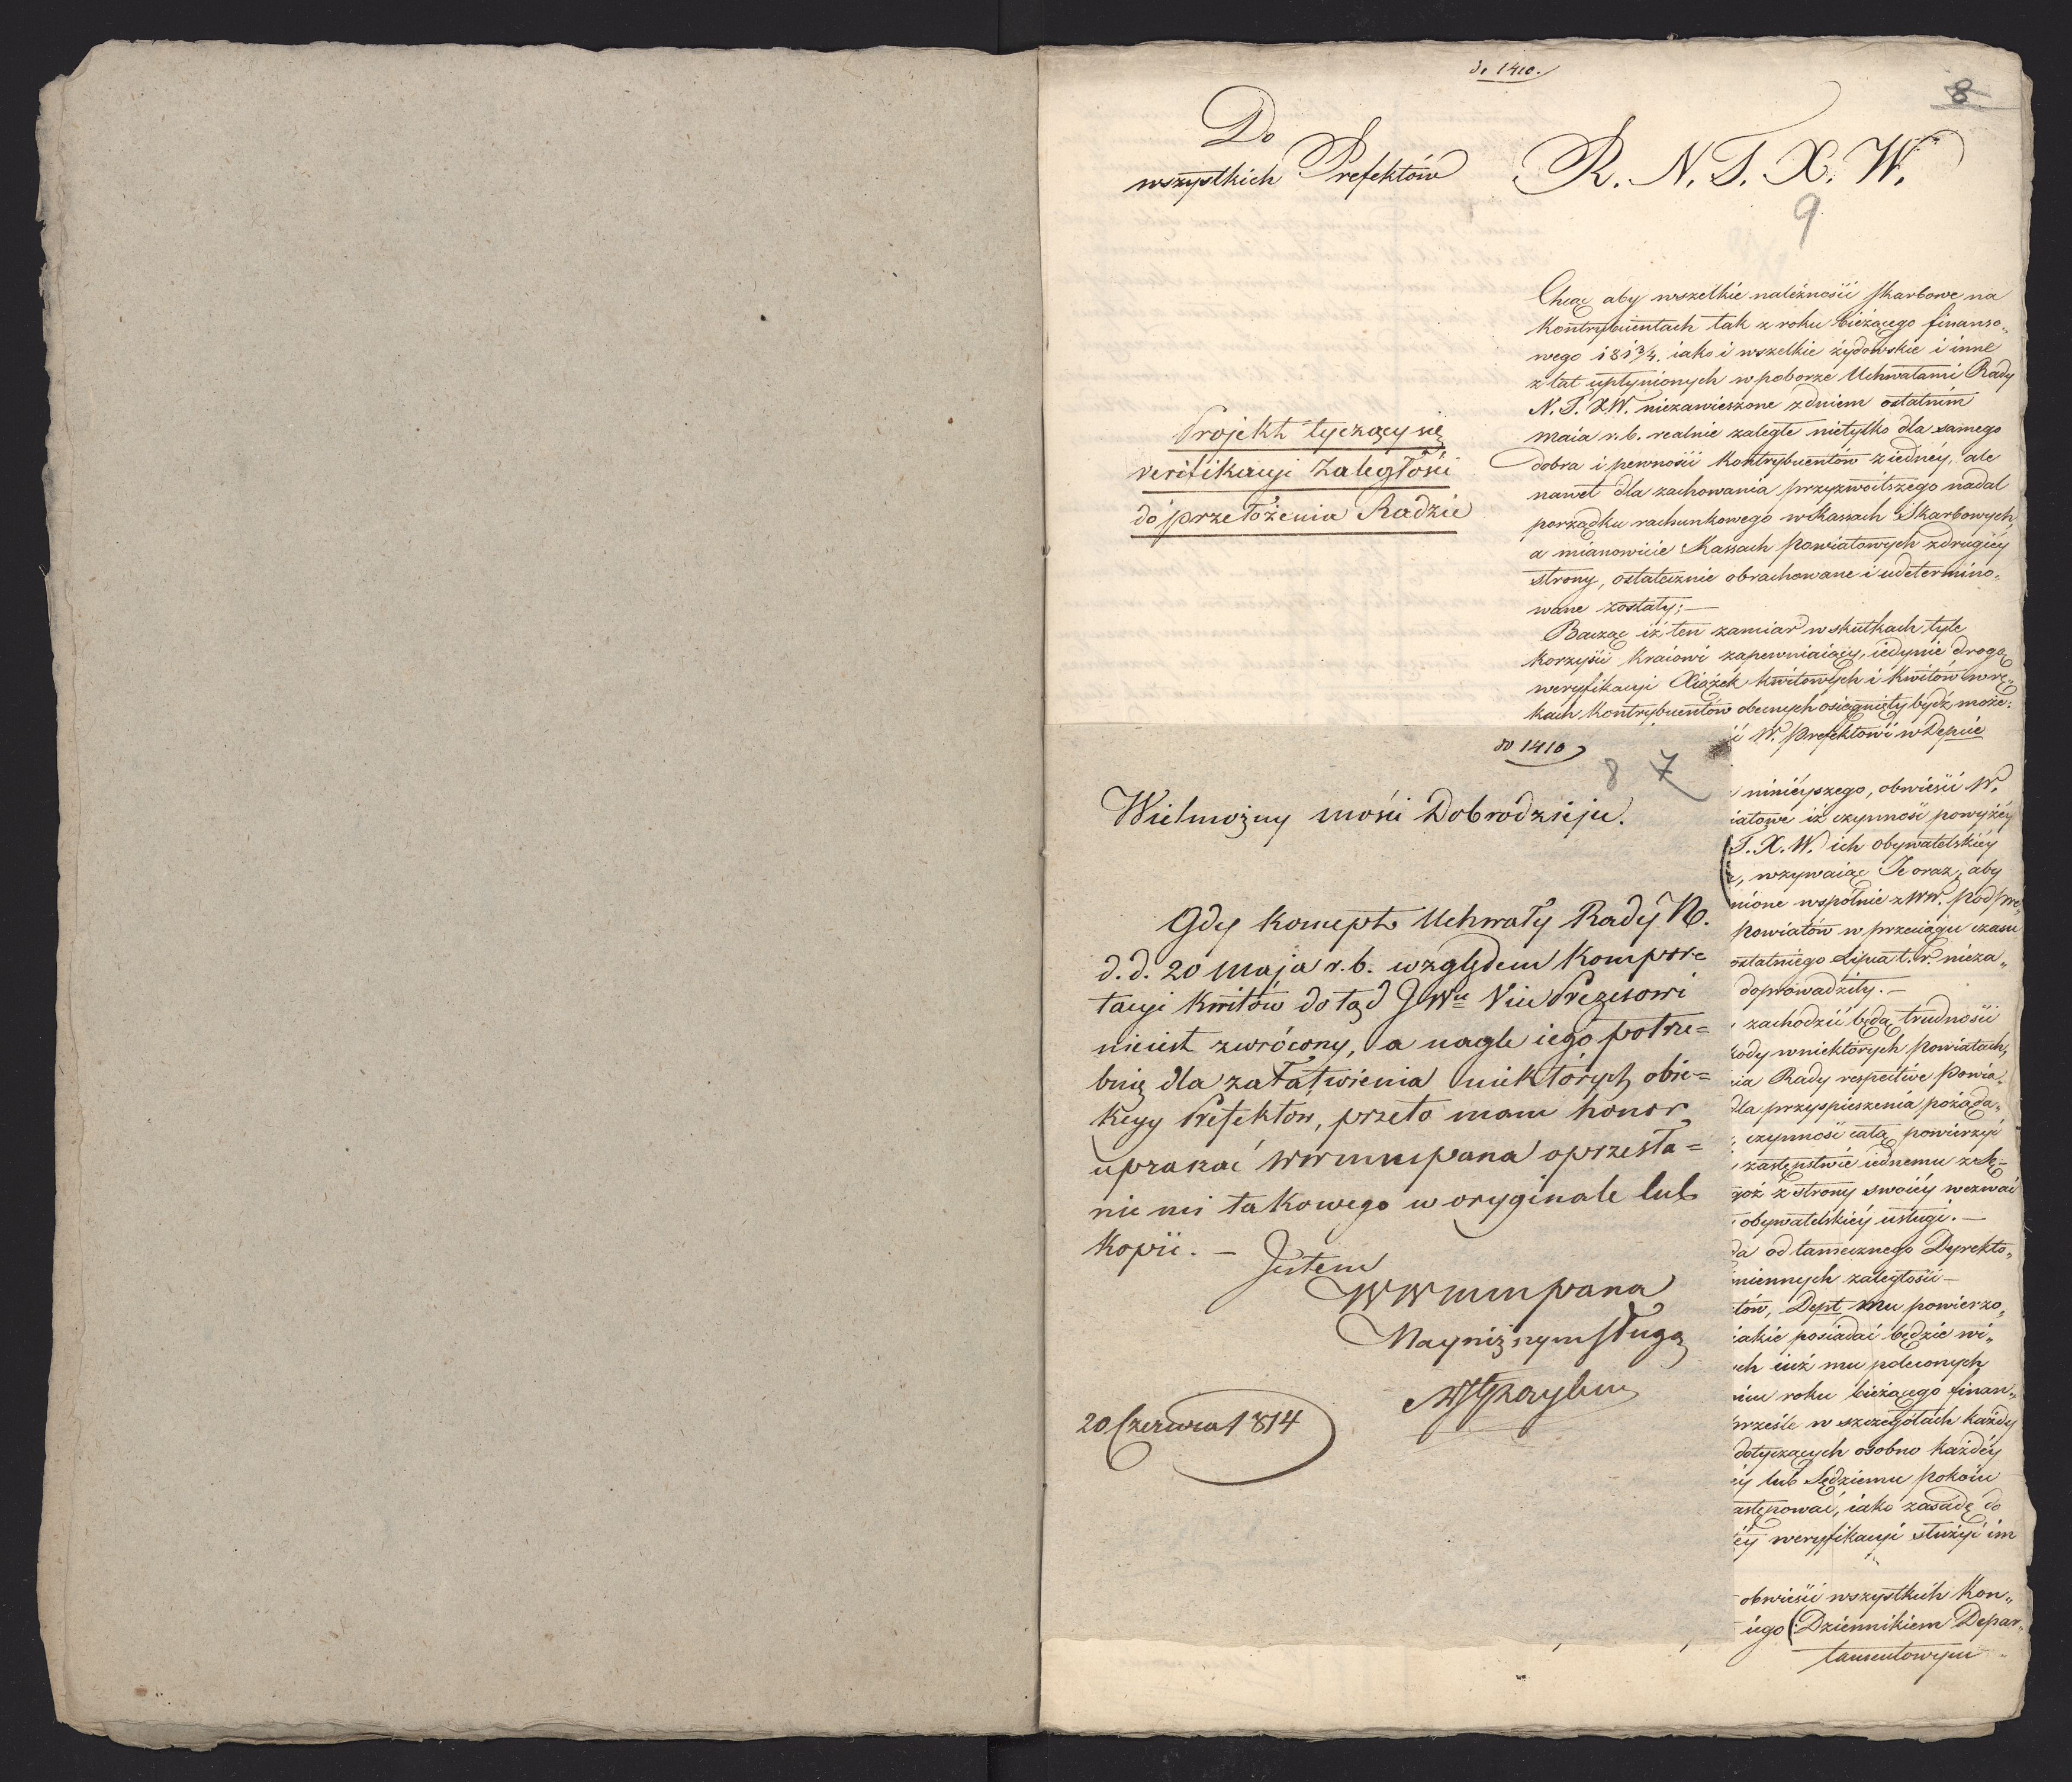 do 1410.
8
Do
wszystkich Prefektów
R. N. T. X. W.
9
Projekt tyczący się
verifikacyi Zaległości
do przełożenia Radzie
Chcąc aby wszelkie należności skarbowe na
Kontrybuentach tak z roku bieżącego finanso„
wego 181¾. iako i wszelkie żydowskie i inne
z lat upłynionych w poborze Uchwałami Rady
N. T. X W. niezawieszone z dniem ostatnim
maia r. b. realnie zaległe nietylko dla samego
dobra i pewności Kontrybuentów z iednéy, ale
nawet dla zachowania przyzwoitszego nadal
porządku rachunkowego w Kassach Skarbowych,
a mianowicie Kassach Powiatowych z drugiéy
strony, ostatecznie obrachowane i udetermino„
wane zostały; —
Bacząc iż ten zamiar w skutkach tyle
korzyści Kraiowi zapewniaiący, iedynie drogą
weryfikacyi Xiążek kwitowych i Kwitów w rę„
kach Kontrybuentów obecnych osiągnięty bydź może:
W. Prefektowi w Depcie
ninieyszego, obwieści W.
iatowe iż czynność powyżéy
T. X. W. ich obywatelskiéy
, wzywaiąc Je oraz, aby
nione wspólnie z WW. Podpre„
Powiatów w przeciągu czasu
ostatniego Lipca t. r. nieza„
doprowadziły. —
zachodzić będą trudności
ody w niektórych Powiatach,
ia Rady respective Powia„
dla przyspieszenia pożąda„
czynność całą powierzyć
zastępstwie iednemu z Sę„
goż z strony swoiéy wezwać
obywatelskiéy usługi. —
da od tamecznego Dyrekto„
miennych zaległości —
tów, Dept mu powierzo„
iakie posiadać będzie wi„
ch iuż mu poleconych
niu roku bieżącego finan„
prześle w szczegółach każdy
dotyczących osobno każdéy
éy lub Sędziemu Pokoiu
astępować, iako zasadę do
éy weryfikacyi służyć im
obwieści wszystkich Kon„
iego (: Dziennikiem Depar„
tamentowym
do 1410
8 7
Wielmożny mości Dobrodzieju.
Gdy koncept Uchwały Rady N.
d. d. 20 Maja r. b. względem Kompor=
tacyi kwitów dotąd JWu Vice Prezesowi
nieiest zwrócony, a nagle iego potrze=
buię dla załatwienia niektórych obie=
kcyy Prefektów, przeto mam honor
upraszać WWmmpana o przesła=
nie mi takowego w oryginale lub
Kopii. —
Jestem
WWmmpana
Nayniższym sługą
20 Czerwca 1814